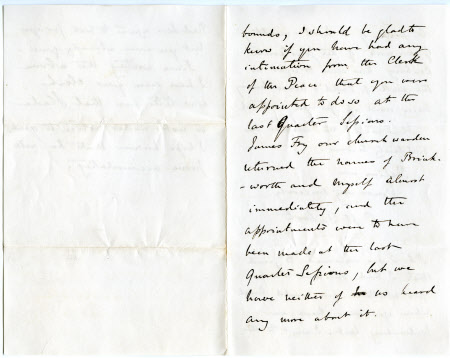 bounds, I should be glad to
know if you have had any
intimation from the Clerk
of the Peace that you were
appointed to do so at the
last Quarter Sessions.
James Fry our churchwarden
returned the names of Brink-
-worth and myself almost
immediately, and the
appointments were to have
been made at the last
Quarter Sessions, but we
have neither of us heard
any more about it.